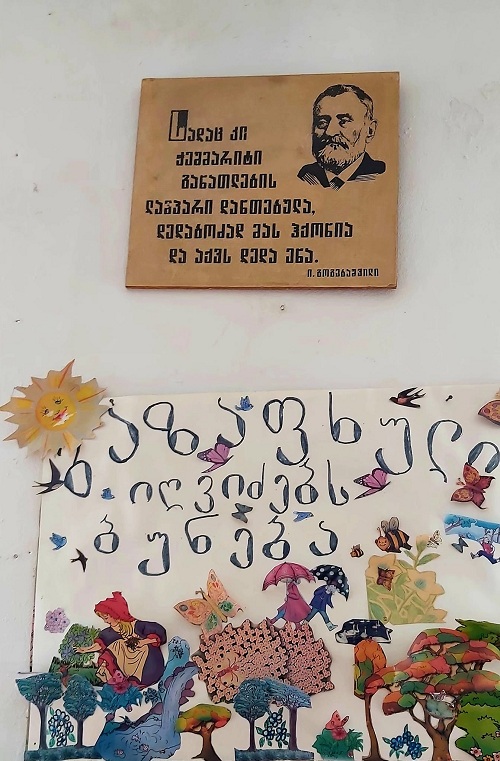 სადაც კი
ჭეშმარიტი
განათლების
ლამპარი დანთებულა,
დედაბოძად მას ჰქონია
და აქვს დედა ენა.
ი. გოგებაშვილი
გაზაფხული
იღვიძებს
ბუნება